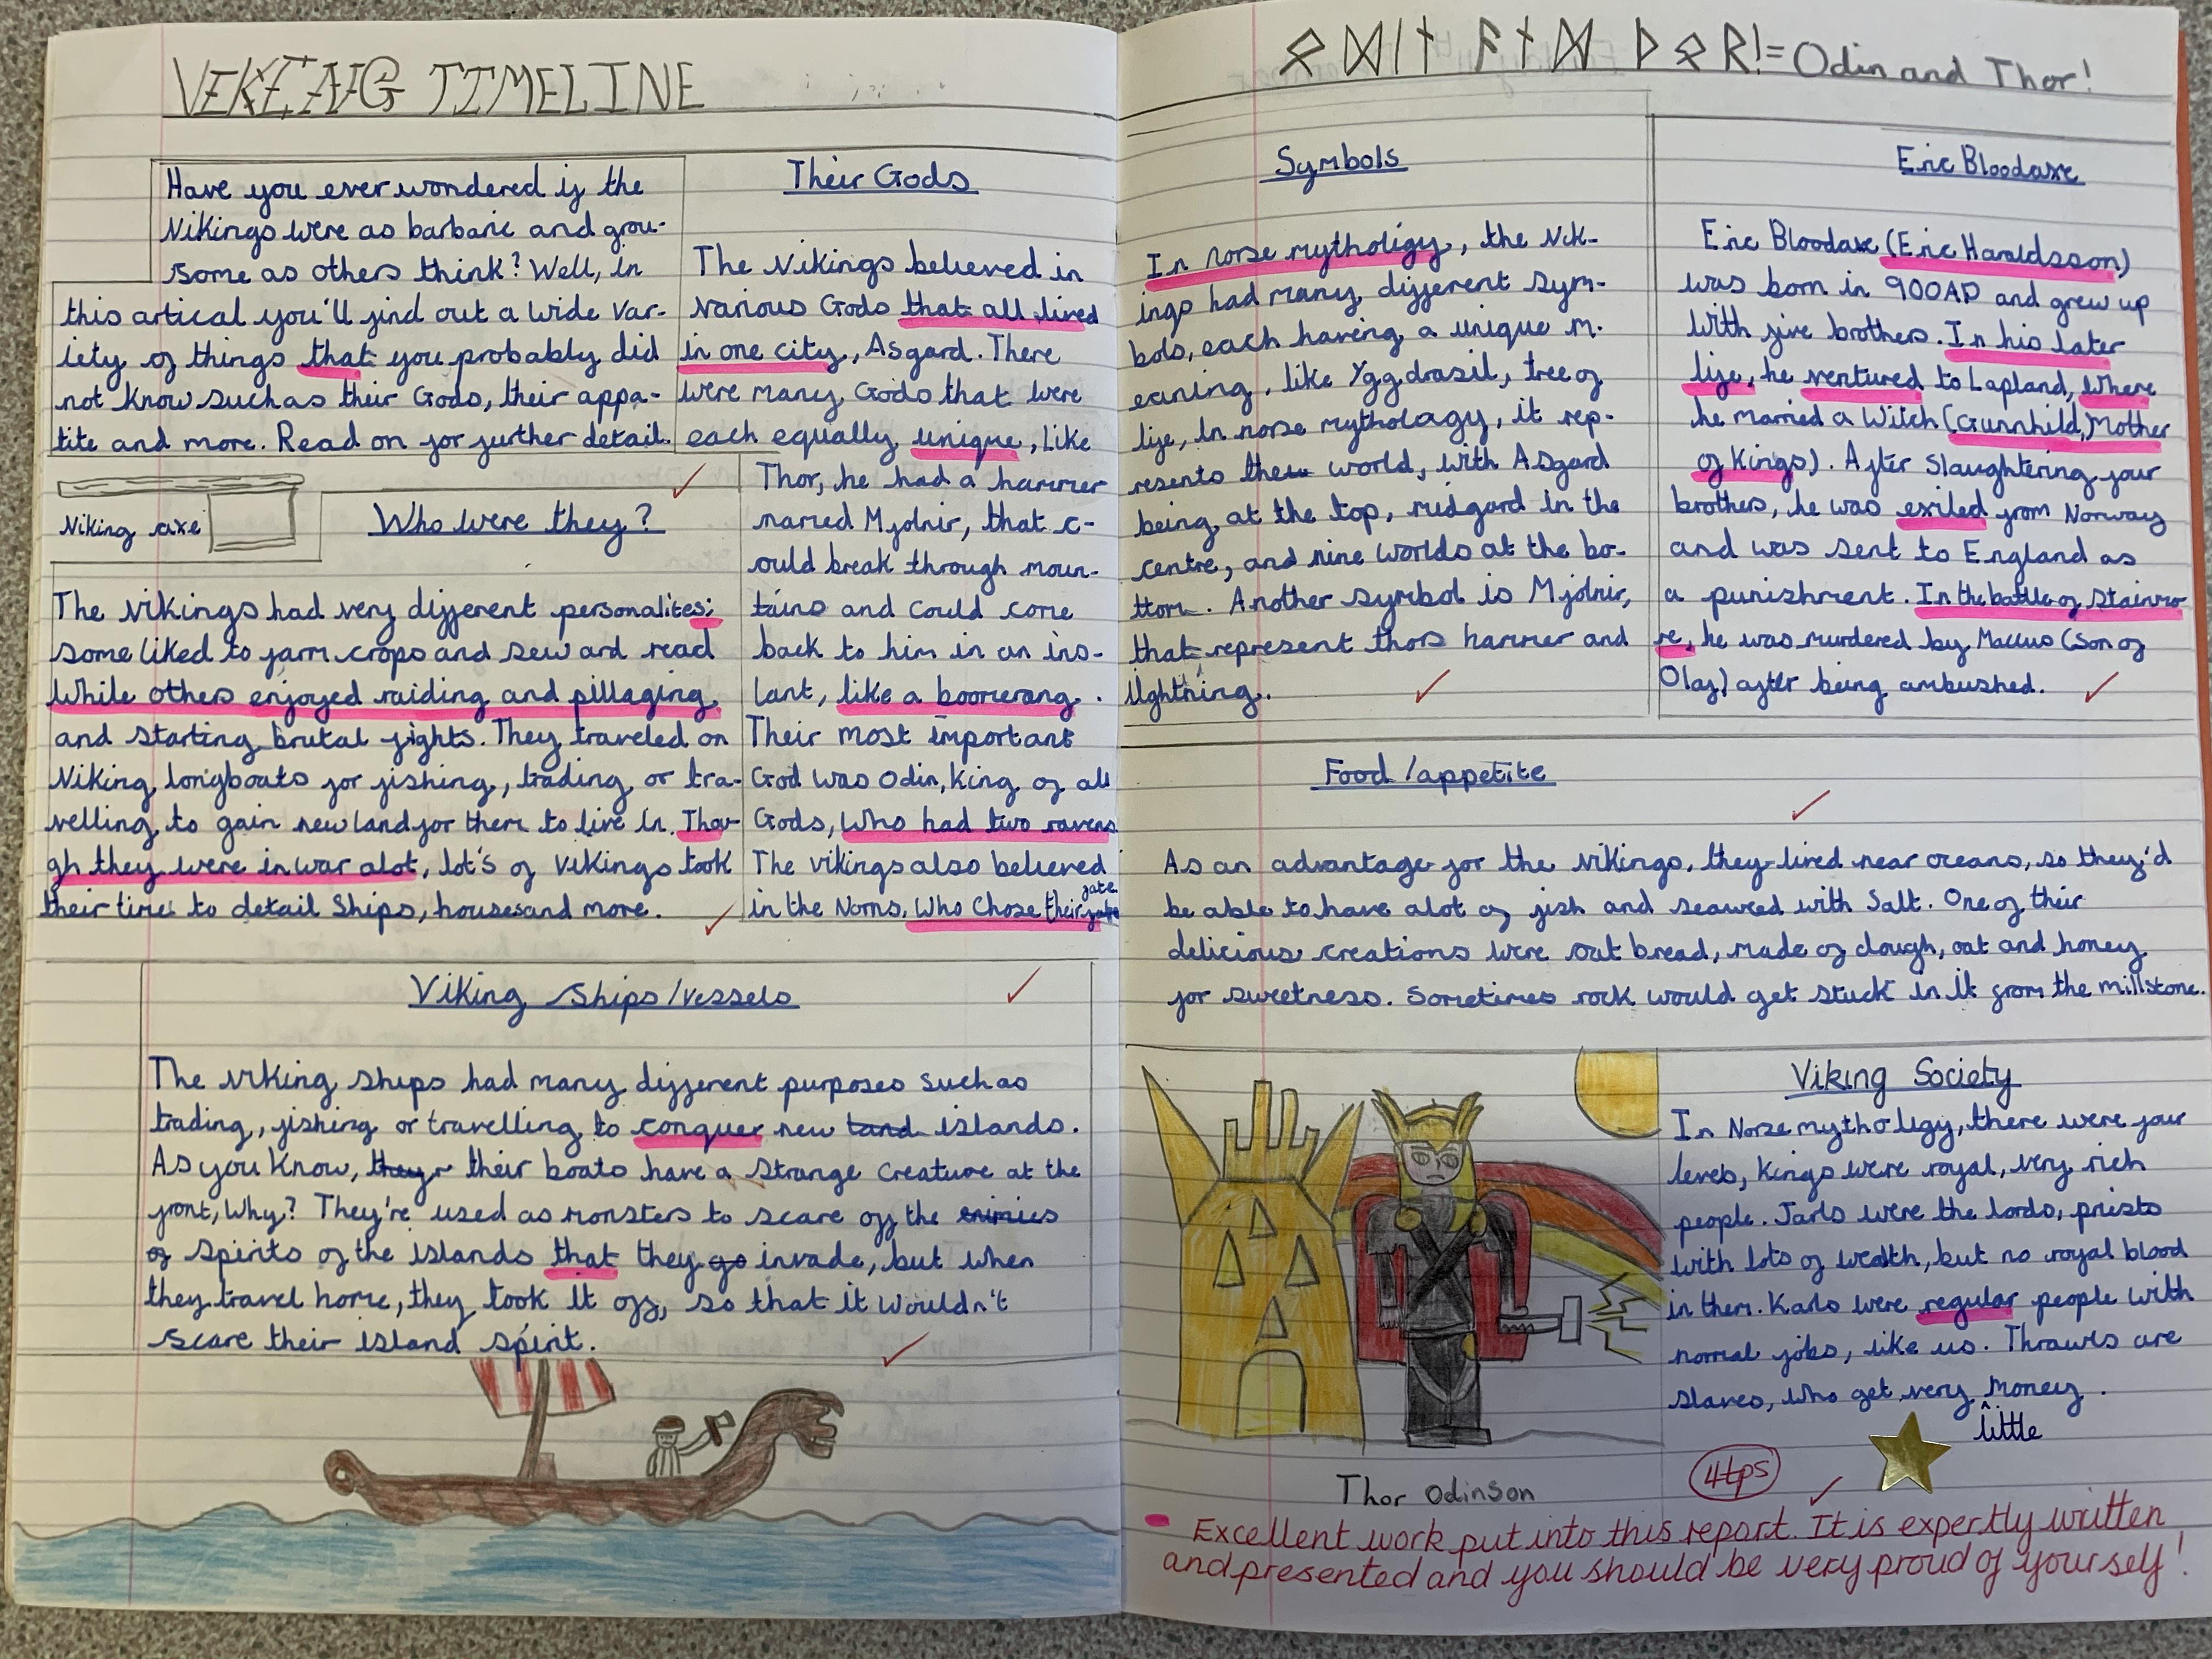 VIKING TIMELINE
Have you ever wondered if the
Vikings were as barbaric and grou-
some as others think? Well, in
this artical you'll find out a wide var-
iety of things that you probably did
not know such as their Gods, their appa-
tite and more. Read on for further detail.
Viking axe
Who were they?
The Vikings had very different personalites;
some liked to farm crops and sew and read
while others enjoyed raiding and pillaging
and starting brutal fights. They traveled on
Viking longboats for fishing, trading, or tra-
velling to gain new land for them to live in. Thou-
gh they were in war alot, lot's of Vikings took
their time to detail ships, houses and more.
Their Gods
The Vikings believed in
various Gods that all lived
in one city, Asgard. There
were many Gods that were
each equally unique, like
Thor, he had a hammer
named Mjolnir, that c-
ould break through moun-
tains and could come
back to him in an ins-
tant, like a boomerang.
Their most important
God was Odin, King of all
Gods, who had two ravens
The vikings also believed
in the Norns, who chose their fate
Viking Ships/vessels
The viking ships had many different purposes such as
trading, fishing or travelling to conquer new land islands.
As you know, they their boats have a strange creature at the
front, why? They're used as monsters to scare off the enimies
of spirits of the islands that they go invade, but when
they travel home, they took it off, so that it wouldn't
scare their island spirit.
ᛟ ᛞ ᛁ ᚾ ᚨ ᚾ ᛞ ᚦ ᛟ ᚱ != Odin and Thor!
Symbols
In norse mytholigy, the Vik-
ings had many different sym-
bols, each having a unique m-
eaning, like Yggdrasil, tree of
life, In norse mythology, it rep-
resents the world, with Asgard
being at the top, midgard in the
centre, and nine worlds at the bo-
ttom. Another symbol is Mjolnir,
that represent thors hammer and
lightning.
Eric Bloodaxe
Eric Bloodaxe (Eric Haraldsson)
was born in 900AD and grew up
with five brothers. In his later
life, he ventured to Lapland, where
he married a Witch (Gunnhild, Mother
of Kings). After slaughtering four
brothers, he was exiled from Norway
and was sent to England as
a punishment. In the battle of Stainmo-
re, he was murdered by Maccus (son of
Olaf) after being ambushed.
Food/appetite
As an advantage for the vikings, they lived near oceans, so they'd
be able to have alot of fish and seaweed with salt. One of their
delicious creations were oat bread, made of dough, oat and honey
for sweetness. Sometimes rock would get stuck in it from the millstone.
Thor Odinson
Viking Society
In Norse mythology, there were four
levels, Kings were royal, very rich
people. Jarls were the lords, priests
with lots of wealth, but no royal blood
in them. Karls were regular people with
normal jobs, like us. Thrawls are
slaves, who get very little money.
4tps
Excellent work put into this report. It is expertly written
and presented and you should be very proud of yourself!